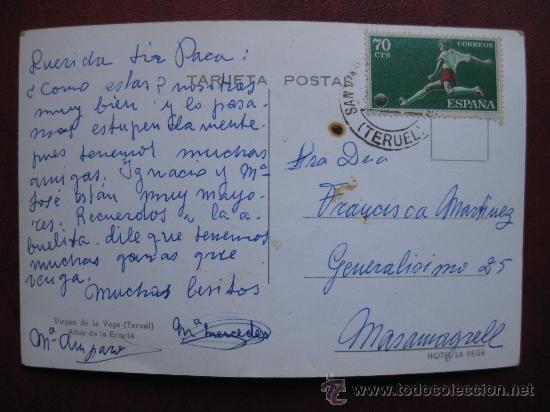 Querida tia Paca:
TARJETA POSTAL
¿Como estas? nosotras
muy bien y lo pasa-
mos estupendamente
pues tenemos muchas
amigas. Ignacio y Mª
José están muy mayo-
res. Recuerdos a la a-
buelita, dile que tenemos
muchas ganas que
venga.
Muchos besitos
Virgen de la Vega (Teruel)
Altar de la Ermita
Mª Amparo
Mª Mercedes
70
CTS
CORREOS
ESPAÑA
(TERUEL)
Sra Dña
Francisca Martinez
Generalisimo 25
Masamagrell
HOTEL LA VEGA
todocoleccion
www.todocoleccion.net